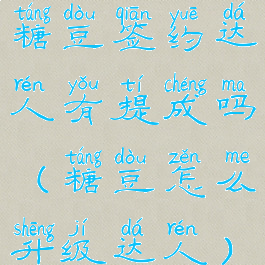 táng dòu qiān yuē dá
糖豆签约达
rén yǒu tí chéng ma
人有提成吗
táng dòu zěn me
（糖豆怎么
shēng jí dá rén
升级达人）